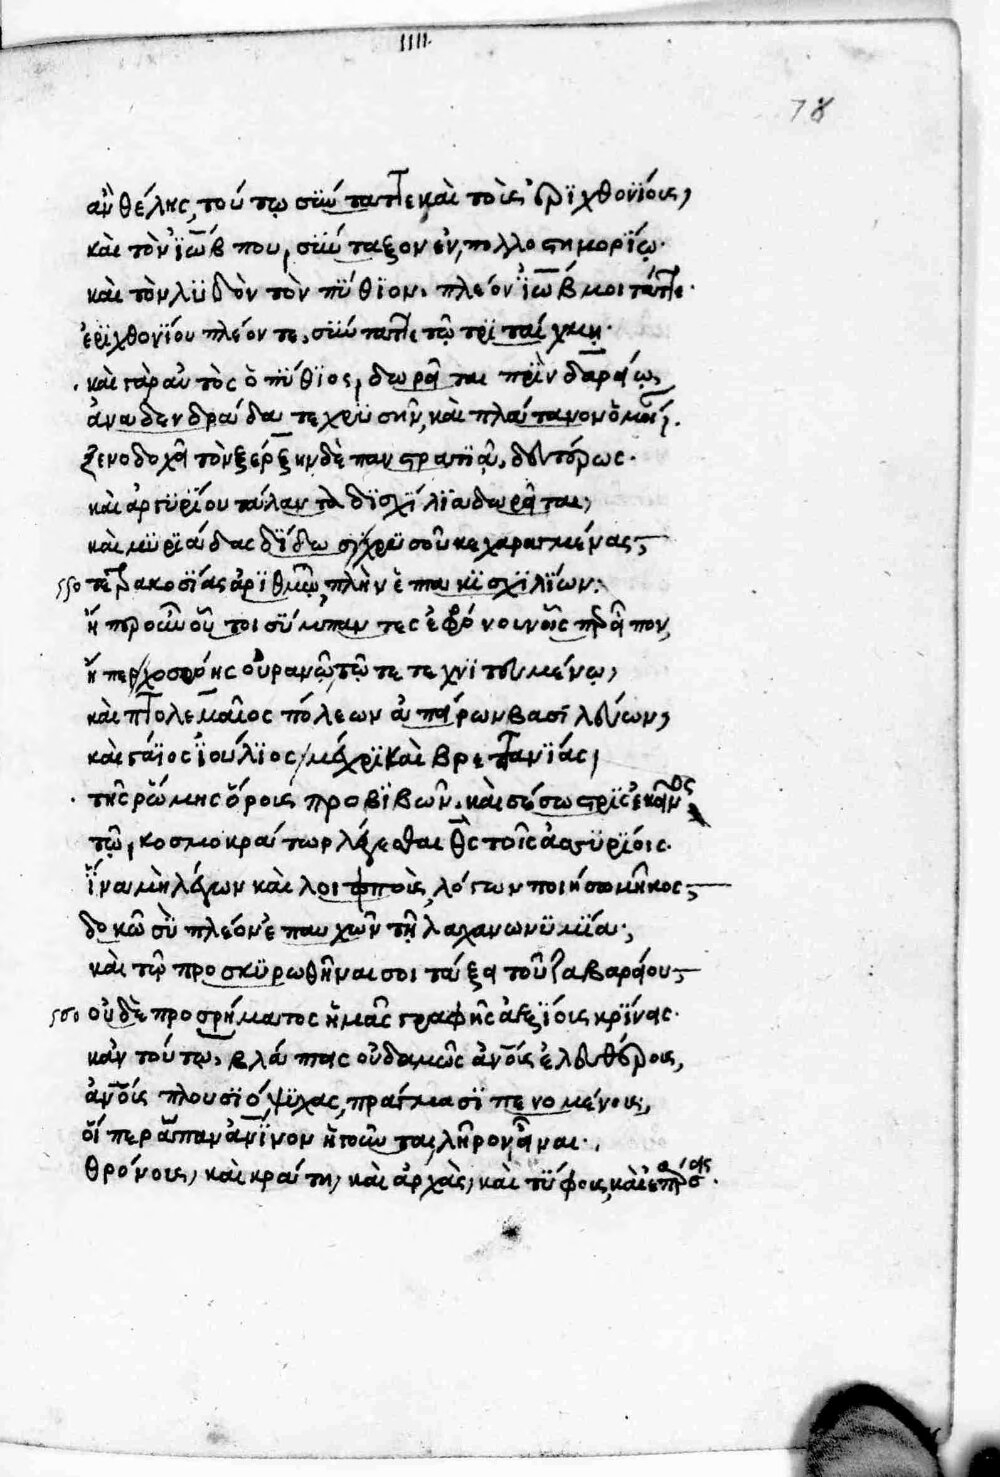 IIII.
78
ἂν θέλης, τούτω σύνταττε καὶ τοῖς ἐριχθονίοις,
καὶ τὸν ἰὼβ που, σύνταξον ἐν, πολλοστημορίω·
καὶ τὸν λυδὸν τὸν πύθιον. πλέον ἰὼβ μοι τάττε·
ἐριχθονίου πλέον τε, σύνταττε τῶ τριταίχμη·
καὶ γὰρ αὐτὸς ὁ πύθιος, δωρεῖται πρὶν δαρείω,
ἀναδενδράδα τε χρυσῆν, καὶ πλάτανον ὁμοίως.
ξενοδοχεῖ τὸν ξέρξην δὲ πανστρατιᾷ, δευτέρως·
καὶ ἀργυρίου τάλαντα δισχίλια δωρεῖται,
καὶ μυριάδας δίδωσι χρυσοῦ κεχαραγμένας
550 τετρακοσίας ἀριθμῶ, πλὴν ἑπτακισχιλίων·
ἢ πρὸ ὧν οὗτοι σύμπαντες ἐφρόνουν εἰς
ἤπερ χοσρόης οὐρανῶ, τῶ τετεχνιτευμένω,
καὶ πτολεμαῖος πόλεων ἀπείρων βασιλεύων,
καὶ γάϊος ἰούλιος, μέχρι καὶ βρεττανίας,
τῆς ῥώμης ὅροις προβιβῶν. καὶ σέσωστρις ἐκεῖνος
τῶ, κοσμοκράτωρ λέγεσθαι θεὸς τοῖς ἀσσυρίοις·
ἵνα μὴ λέγων καὶ λοιποὺς, λόγων ποιήσω μῆκος
δοκῶ σὺ πλέον ἐπαυχῶν τῆ λαχανωνυμία·
καὶ τῶ προσκυρωθῆναι σοι τάξα τοῦ ζαβαρείου
560 οὐδὲ προσρήματος ἡμᾶς γραφῆς ἀξίοις κρίνας·
κἀν τούτω, βλάπτεις οὐδαμῶς ἀνθρώποις ἐλευθέροις,
ἀνθρώποις πλουσιοψύχοις, πράγμασι πενομένοις,
οἵπερ ἅπαν ἀνθρώπινον ἡγοῦνται, λῆρον εἶναι·
θρόνους, καὶ κράτη, καὶ ἀρχὰς, καὶ τύφους, καὶ